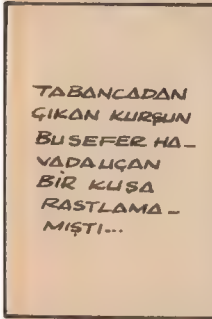 TABANCADAN
ÇIKAN KURŞUN
BU SEFER HA-
VADA UÇAN
BİR KUŞA
RASTLAMA-
MIŞTI...